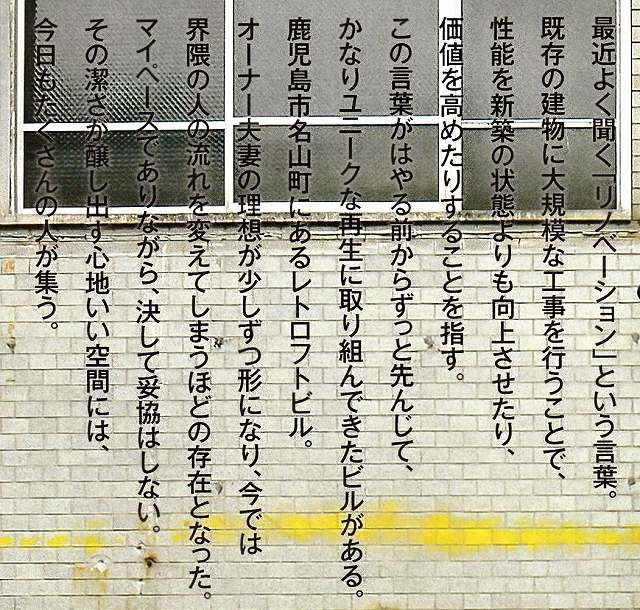 最近よく聞く「リノベーション」という言葉。
既存の建物に大規模な工事を行うことで、
性能を新築の状態よりも向上させたり、
価値を高めたりすることを指す。
この言葉がはやる前からずっと先んじて、
かなりユニークな再生に取り組んできたビルがある。
鹿児島市名山町にあるレトロフトビル。
オーナー夫妻の理想が少しずつ形になり、今では
界隈の人の流れを変えてしまうほどの存在となった。
マイペースでありながら、決して妥協はしない。
その潔さが醸し出す心地いい空間には、
今日もたくさんの人が集う。